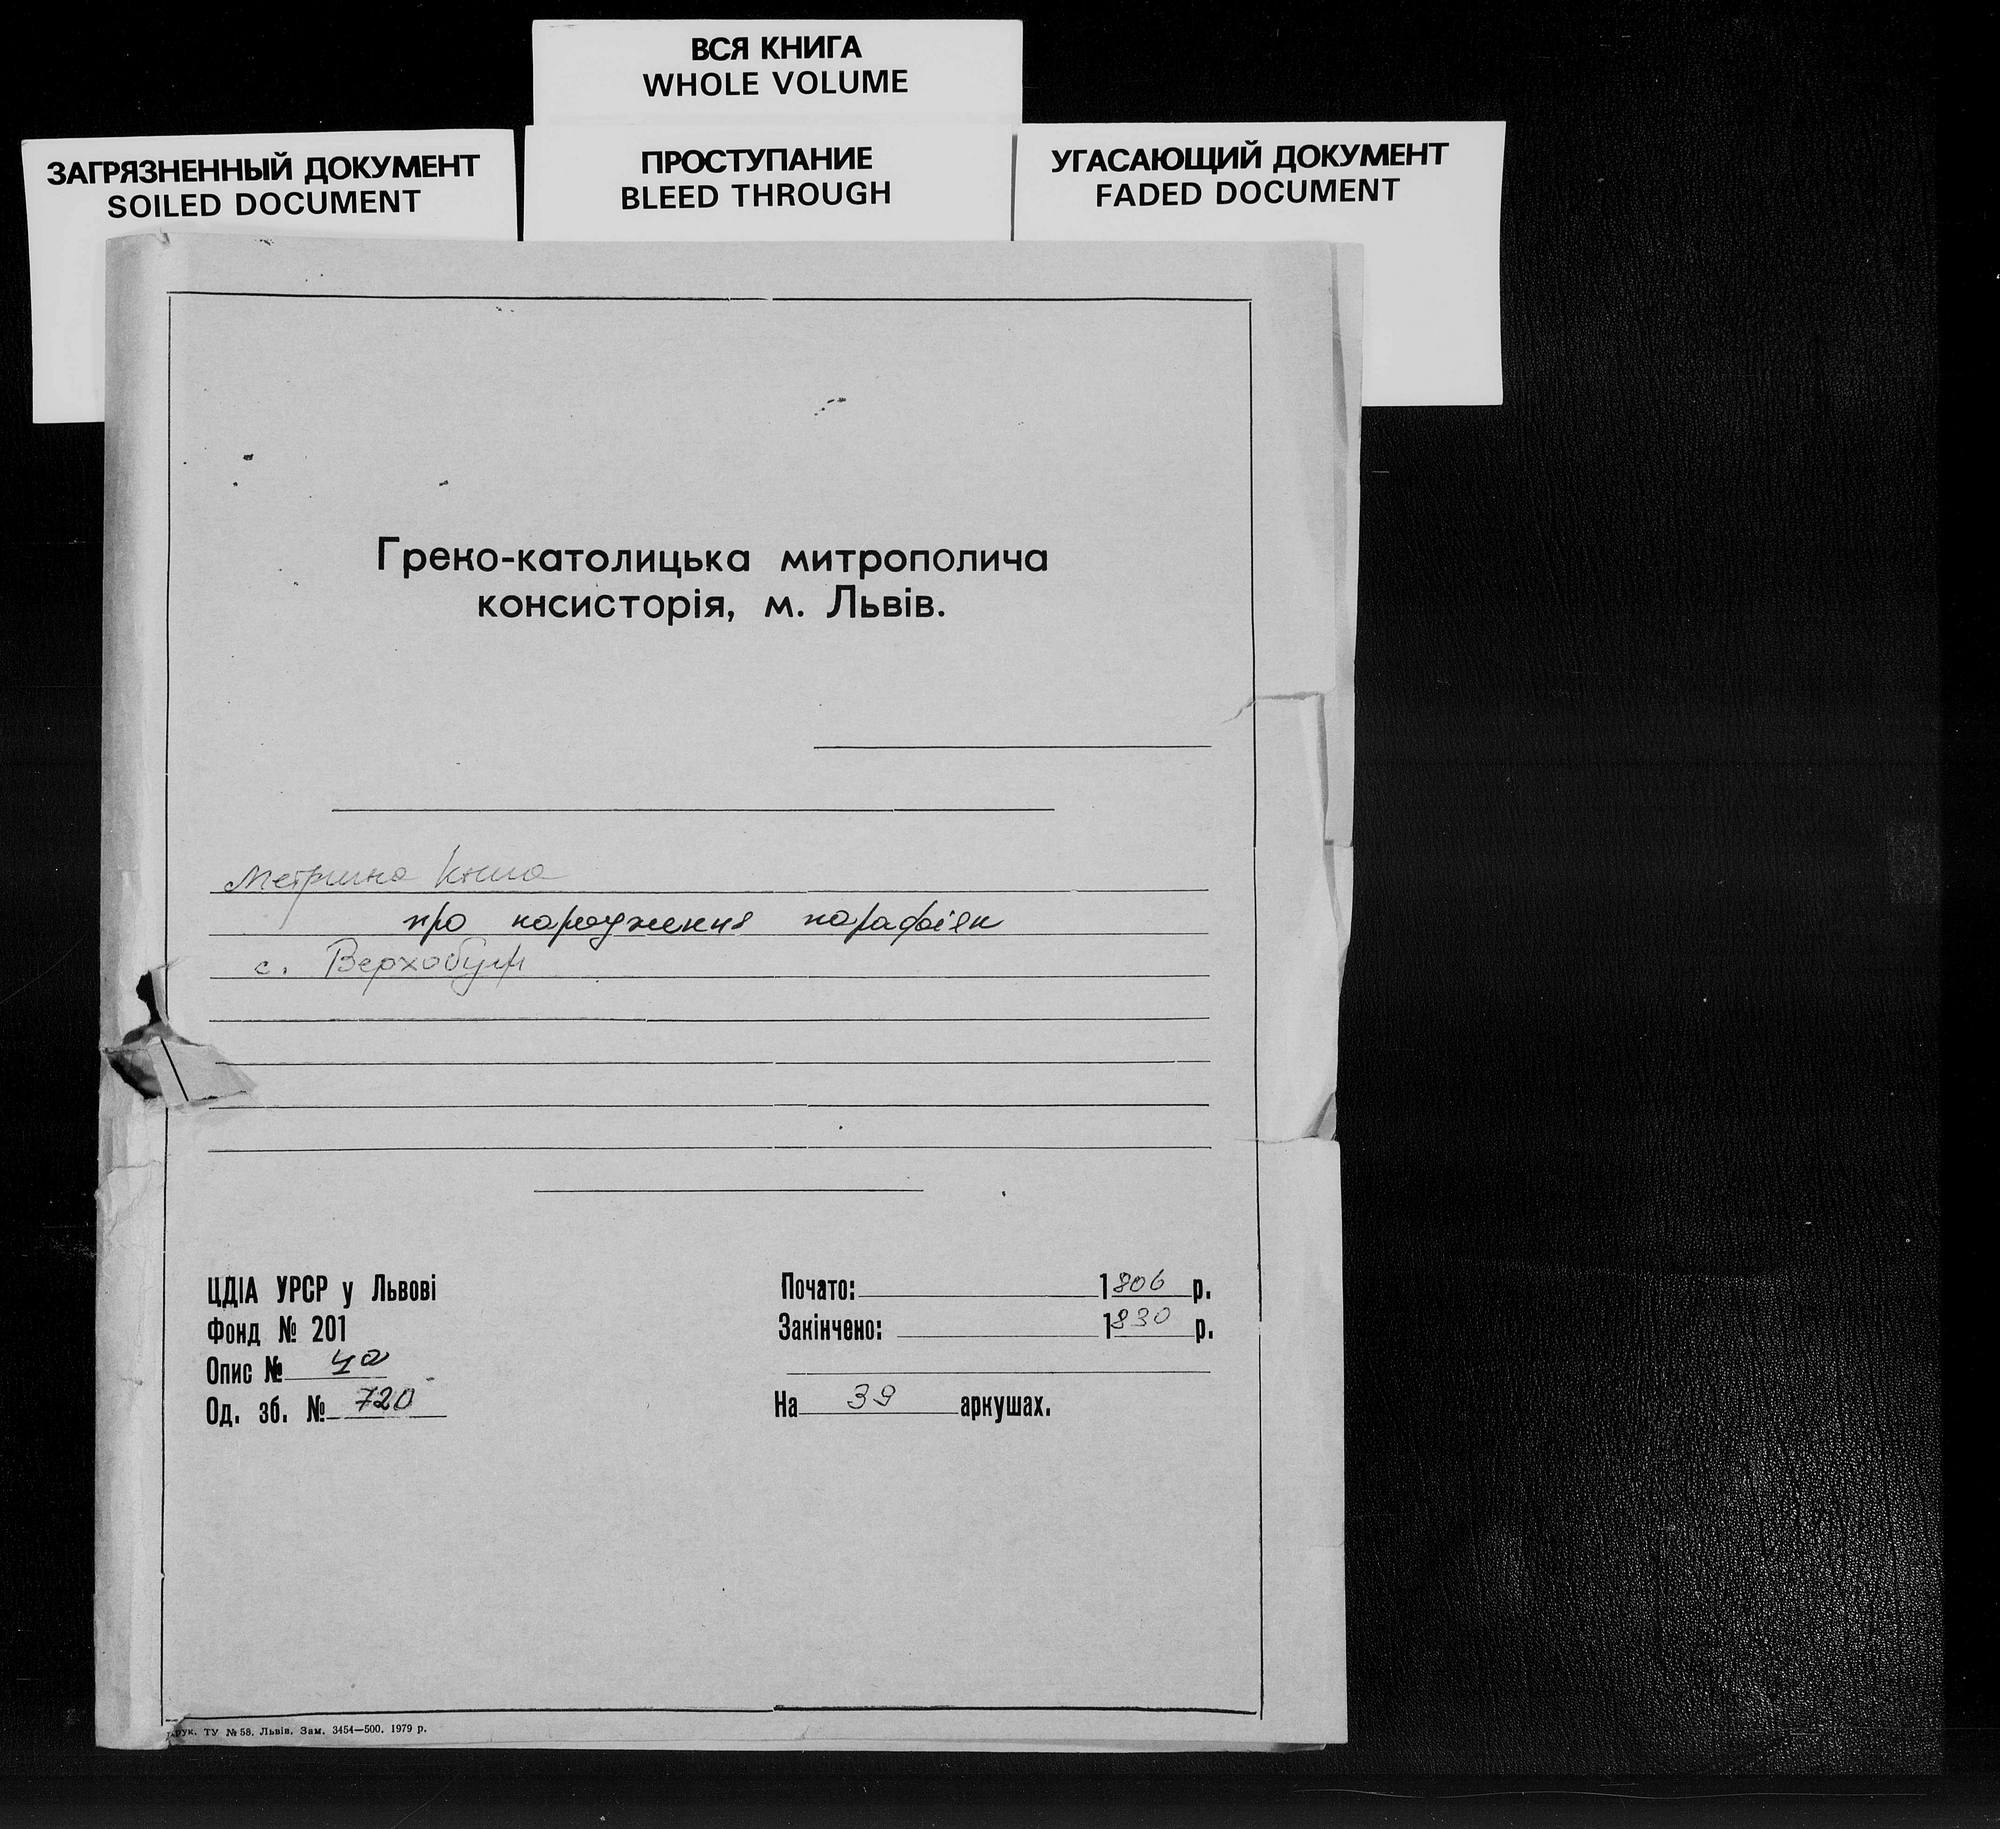 ВСЯ КНИГА
WHOLE VOLUME
ЗАГРЯЗНЕННЫЙ ДОКУМЕНТ
SOILED DOCUMENT
ПРОСТУПАНИЕ
BLEED THROUGH
УГАСАЮЩИЙ ДОКУМЕНТ
FADED DOCUMENT
Греко-католицька митрополича
консисторія, м. Львів.
Метрична книга
про народження парафіян
с. Верхобуж
ЦДІА УРСР у Львові
Фонд № 201
Опис № 4а
Од. зб. № 720
Почато: 1806 р.
Закінчено: 1830 р.
На 39 аркушах.
Друк. ТУ № 58. Львів. Зам. 3454—500. 1979 р.